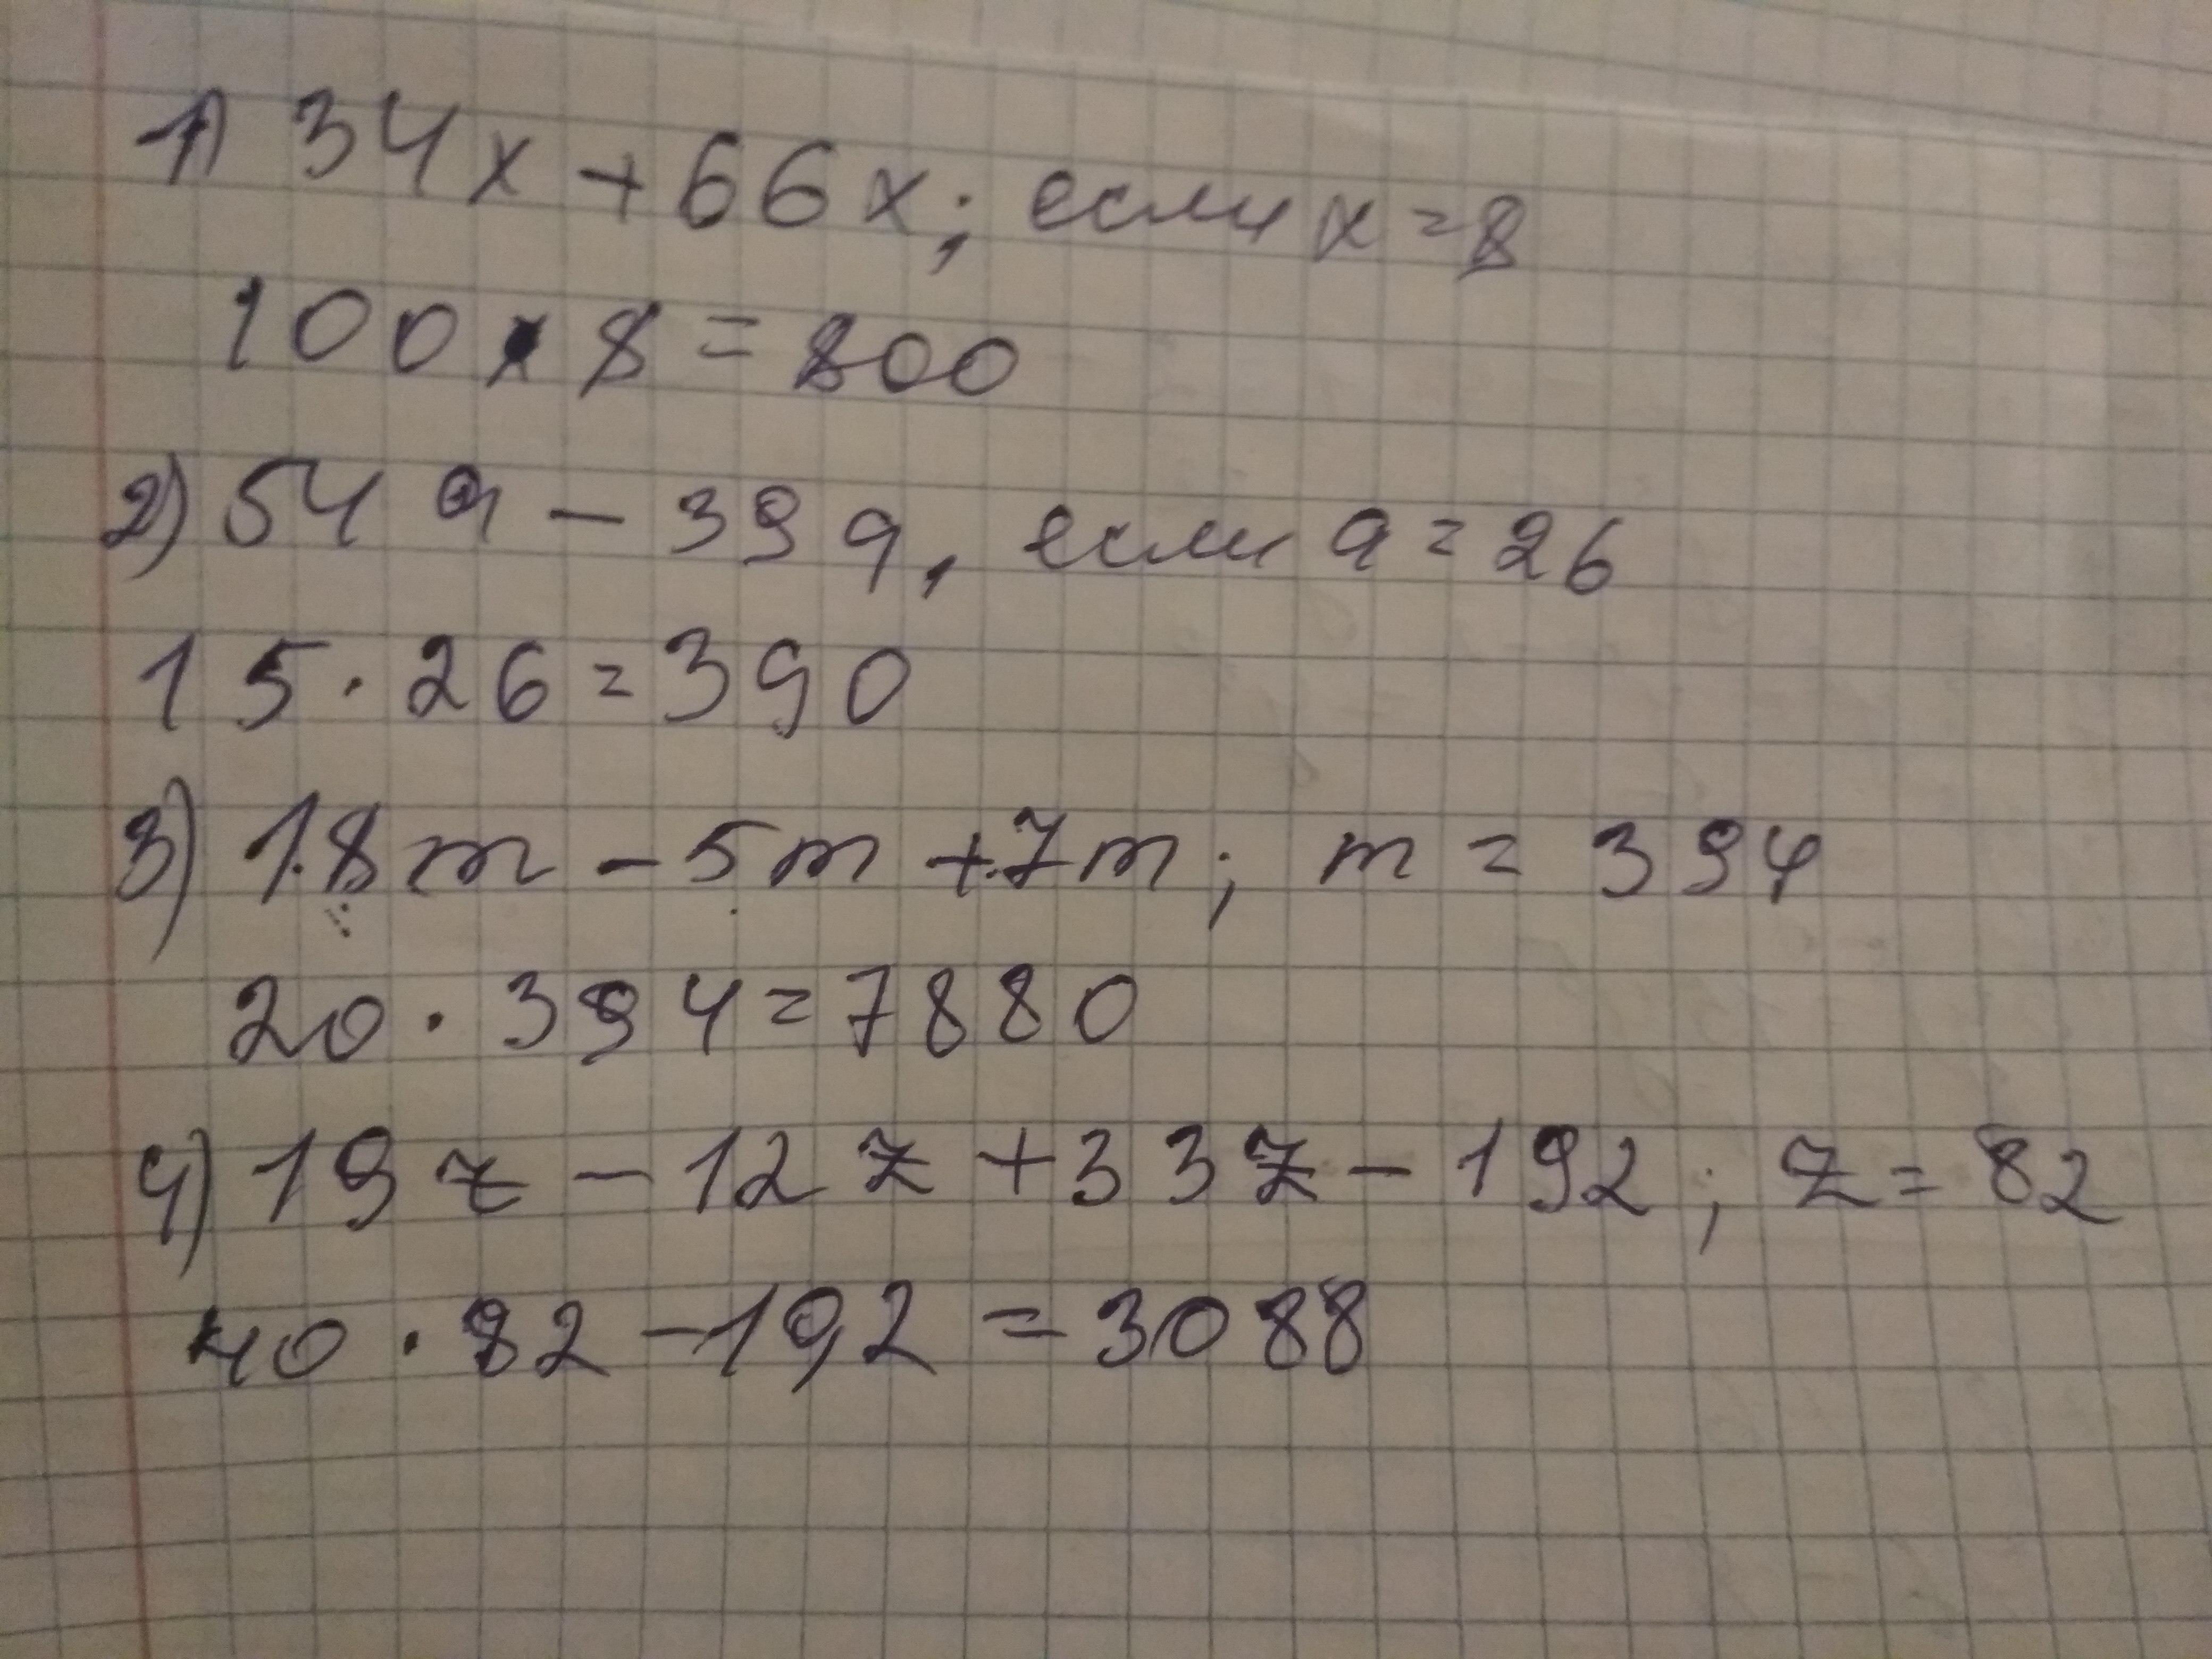 1) 34x + 66x; если x = 8
100 · 8 = 800
2) 54 a - 39a, если a = 26
15 · 26 = 390
3) 18m - 5m + 7m; m = 394
20 · 394 = 7880
4) 19z - 12z + 33z - 192; z = 82
40 · 82 - 192 = 3088